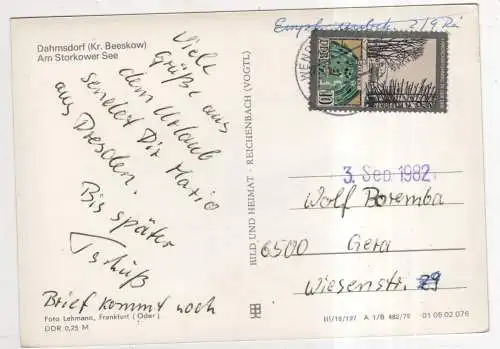 Dahmsdorf (Kr. Beeskow)
Am Storkower See
Viele
Grüße aus
dem Urlaub
sendet Dir Mario
aus Dresden.
Bis später
Tschüß
Brief kommt noch
Foto Lehmann, Frankfurt (Oder)
DDR 0,25 M
BILD UND HEIMAT · REICHENBACH (VOGTL)
3. Sep. 1982
Wolf Boremba
6500 Gera
Wiesenstr. 29
III/18/197 A 1/B 482/79 01 05 02 076